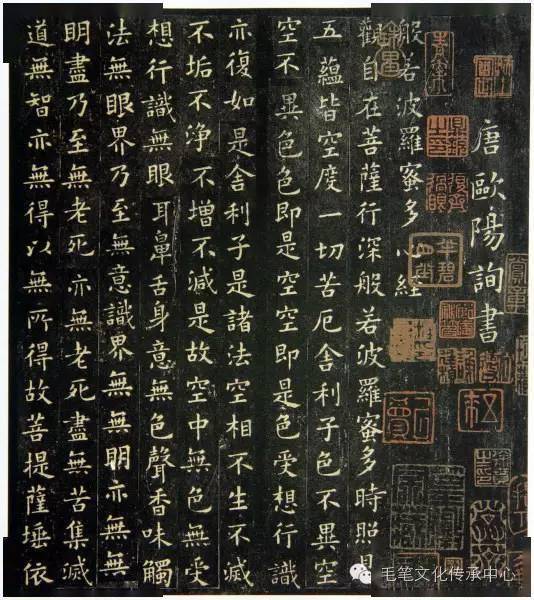 唐歐陽詢書
般若波羅蜜多心經
觀自在菩薩行深般若波羅蜜多時照見
五蘊皆空度一切苦厄舍利子色不異空
空不異色色即是空空即是色受想行識
亦復如是舍利子是諸法空相不生不滅
不垢不净不增不減是故空中無色無受
想行識無眼耳鼻舌身意無色聲香味觸
法無眼界乃至無意識界無無明亦無無
明盡乃至無老死亦無老死盡無苦集滅
道無智亦無得以無所得故菩提薩埵依
毛笔文化传承中心